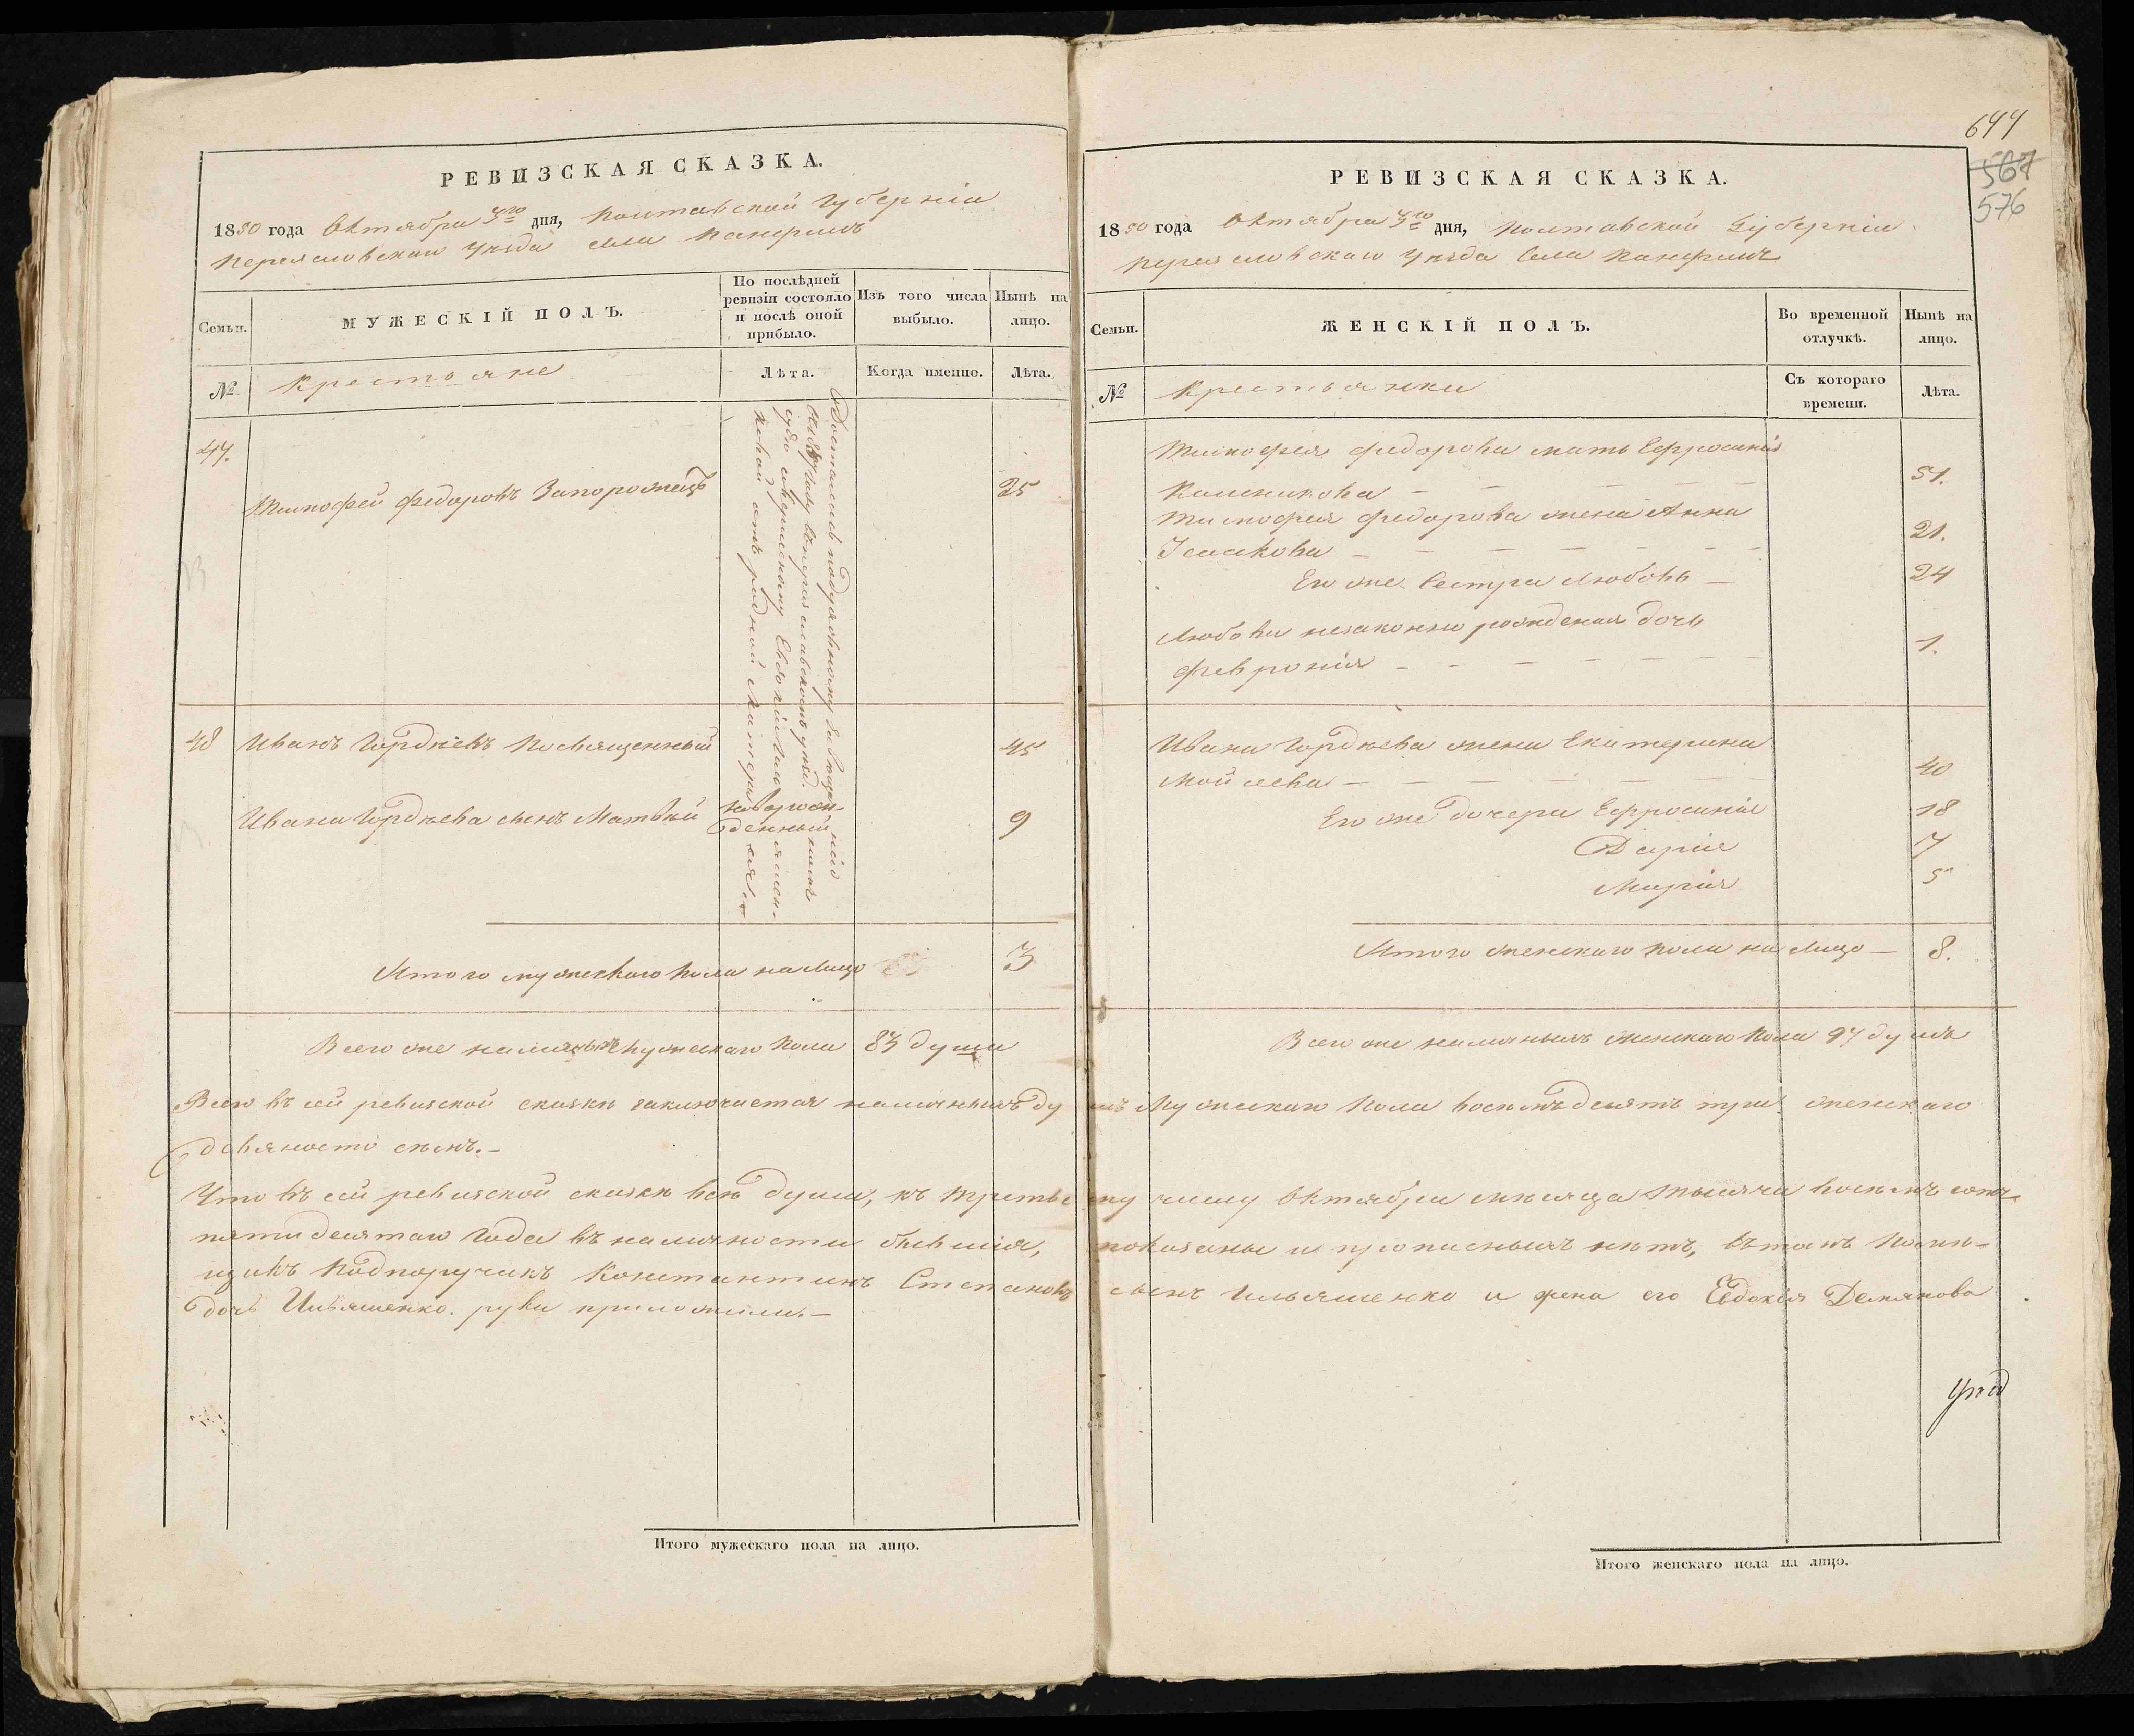 РЕВИЗСКАЯ СКАЗКА.
1850 года Октября 3го дня, Полтавской Губерніи
Переясловскаго Уѣзда села Панфилъ
Семьи.
МУЖЕСКІЙ ПОЛЪ.
По послѣдней ревизіи состояло и послѣ оной прибыло.
Изъ того числа выбыло.
Нынѣ на лицо.
№
Крестьяне
Лѣта.
Когда именно.
Лѣта.
47.
Тимофей Федоровъ Запорожецъ
25
Достались подполковнику
году въ Переяславскомъ уѣзд.
Евдокіи Ильяшен-
ковой отъ родной Матери ея
48
Иванъ Гордѣевъ Посвященный
45
Ивана Гордѣева сынъ Матвѣй
новорож-
денный
9
Итого мужескаго пола на лицо
3
Всего же наличныхъ мужескаго пола 83 души
РЕВИЗСКАЯ СКАЗКА.
644
567
576
1850 года Октября 3го дня, Полтавской Губерніи
Переясловскаго Уѣзда Села Панфилъ
Семьи.
ЖЕНСКІЙ ПОЛЪ.
Во временной отлучкѣ.
Нынѣ на лицо.
№
Крестьянки
Съ котораго времени.
Лѣта.
Тимофея Федорова мать Ефросинія
51.
Тимофея Федорова жена Анна
Исаакова
21.
Его же сестра Любовь
24
Любови незаконно рожденая дочь
Февронія
1.
Ивана Гордѣева жена Екатерина
Мойсеева
40
Его же дочери Ефросинія
18
Дарія
7
Марія
5
Итого женскаго пола на лицо
8.
Всего же наличныхъ женскаго пола 97 душъ
Всего въ сей ревизской сказкѣ заключается наличныхъ душъ Мужескаго пола восемъдесятъ три женскаго
девяносто семъ.
Что въ сей ревизской сказкѣ всѣ души, къ третьему числу Октября мѣсяца тысяча восемъ сотъ
пятидесятаго года въ наличности бывшія, показаны и прописныхъ нѣтъ, въ томъ помѣ-
щикъ Подпоручикъ Константинъ Степановъ сынъ Ильяшенко и жена его Евдокія Демянова
дочь Ильяшенко. руки приложили.
Уѣзд
Итого мужескаго пола на лицо.
Итого женскаго пола на лицо.